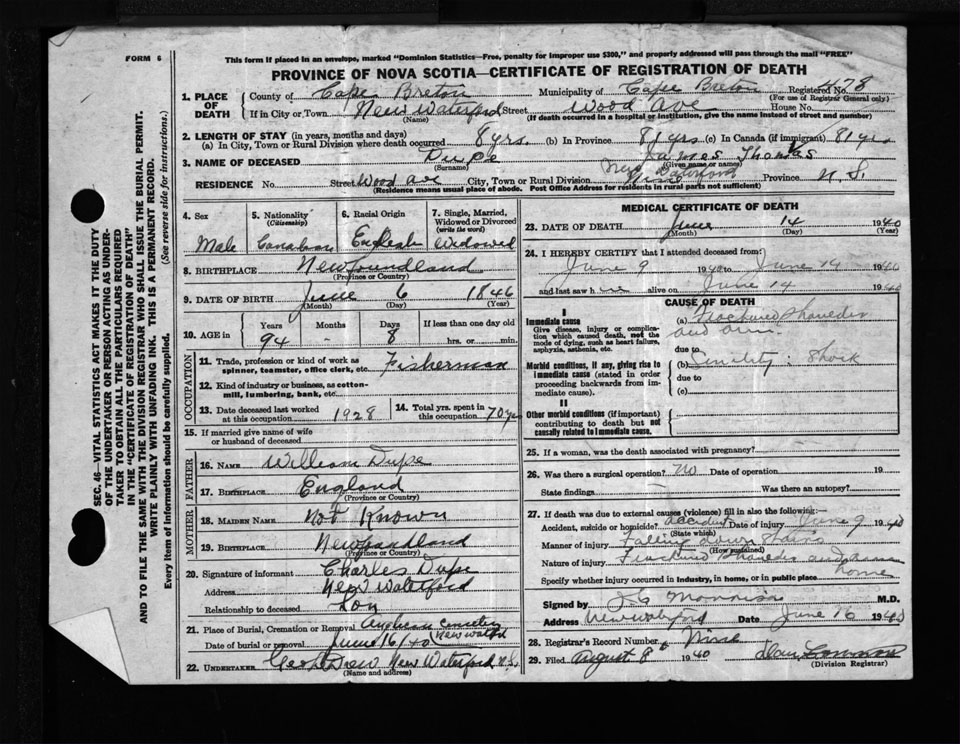 FORM 6
This form if placed in an envelope, marked "Dominion Statistics—Free, penalty for improper use $300," and properly addressed will pass through the mail "FREE"
PROVINCE OF NOVA SCOTIA—CERTIFICATE OF REGISTRATION OF DEATH
1. PLACE OF DEATH
County of Cape Breton Municipality of Cape Breton Registered No. 478
(For use of Registrar General only)
If in City or Town, New Waterford Street Wood Ave House No.
(Name) (If death occurred in a hospital or institution, give the name instead of street and number)
2. LENGTH OF STAY (in years, months and days)
(a) In City, Town or Rural Division where death occurred 8 yrs. (b) In Province 81 yrs (c) In Canada (if immigrant) 81 yrs
3. NAME OF DECEASED Dupe James Thomas
(Surname) (Given name or names)
RESIDENCE No. Street Wood Ave City, Town or Rural Division New Waterford Province N. S.
(Residence means usual place of abode. Post Office Address for residents in rural parts not sufficient)
4. Sex Male
5. Nationality (Citizenship) Canadian
6. Racial Origin English
7. Single, Married, Widowed or Divorced (write the word) Widowed
8. BIRTHPLACE Newfoundland
(Province or Country)
9. DATE OF BIRTH June 6 1846
(Month) (Day) (Year)
10. AGE in Years Months Days If less than one day old
94 - 8 hrs. or min.
OCCUPATION
11. Trade, profession or kind of work as spinner, teamster, office clerk, etc. Fisherman
12. Kind of industry or business, as cotton-mill, lumbering, bank, etc.
13. Date deceased last worked at this occupation 1928
14. Total yrs. spent in this occupation 70 yrs
15. If married give name of wife or husband of deceased
FATHER
16. NAME William Dupe
17. BIRTHPLACE England
(Province or Country)
MOTHER
18. MAIDEN NAME Not Known
19. BIRTHPLACE Newfoundland
(Province or Country)
20. Signature of informant Charles Dupe
Address New Waterford
Relationship to deceased Son
21. Place of Burial, Cremation or Removal cemetery New Waterford
Date of burial or removal June 16/40
22. UNDERTAKER Dew New Waterford N.S.
(Name and address)
MEDICAL CERTIFICATE OF DEATH
23. DATE OF DEATH June 14 1940
(Month) (Day) (Year)
24. I HEREBY CERTIFY that I attended deceased from:
June 9 1940 to June 14 1940
and last saw h alive on June 14 1940
CAUSE OF DEATH
I
Immediate cause
Give disease, injury or complication which caused death, not the mode of dying, such as heart failure, asphyxia, asthenia, etc.
(a) Fractured and arm
due to
Morbid conditions, if any, giving rise to immediate cause (stated in order proceeding backwards from immediate cause).
(b) Senility: Shock
due to
(c)
II
Other morbid conditions (if important) contributing to death but not causally related to immediate cause.
25. If a woman, was the death associated with pregnancy?
26. Was there a surgical operation? No Date of operation 19
State findings Was there an autopsy?
27. If death was due to external causes (violence) fill in also the following:—
Accident, suicide or homicide? accident Date of injury June 9 1940
(State which)
Manner of injury Falling down stairs
(How sustained)
Nature of injury Fractured and arm
Specify whether injury occurred in industry, in home, or in public place home
Signed by Morrison M.D.
Address New Waterford Date June 16 1940
28. Registrar's Record Number
29. Filed August 8 1940
(Division Registrar)
SEC. 46—VITAL STATISTICS ACT MAKES IT THE DUTY
OF THE UNDERTAKER OR PERSON ACTING AS UNDER-
TAKER TO OBTAIN ALL THE PARTICULARS REQUIRED
IN THE "CERTIFICATE OF REGISTRATION OF DEATH"
AND TO FILE THE SAME WITH THE DIVISION REGISTRAR WHO SHALL ISSUE THE BURIAL PERMIT.
WRITE PLAINLY WITH UNFADING INK. THIS IS A PERMANENT RECORD.
Every item of information should be carefully supplied. (See reverse side for instructions.)